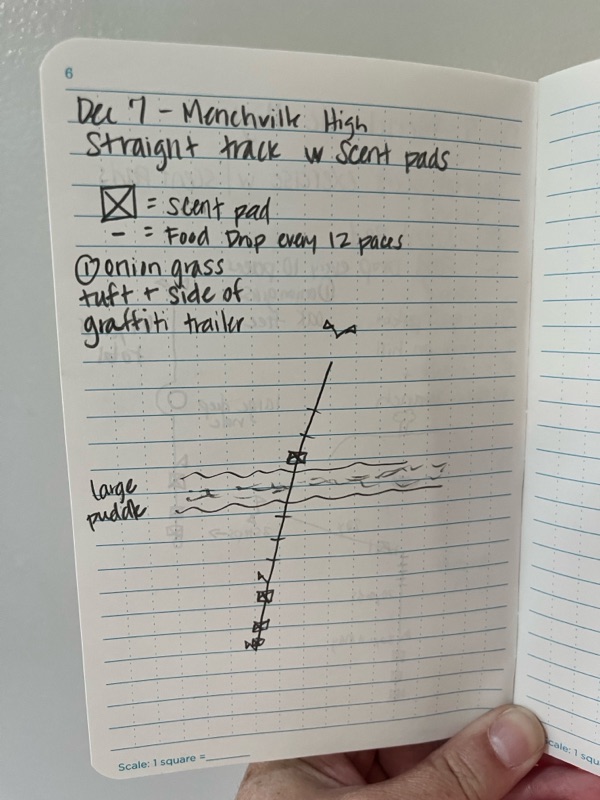 6
Dec 7 - Menchville High
Straight track w Scent pads
= scent pad
- = Food Drop every 12 paces
① onion grass
tuft + side of
graffiti trailer
large
puddle
Scale: 1 square =
cale: 1 squ